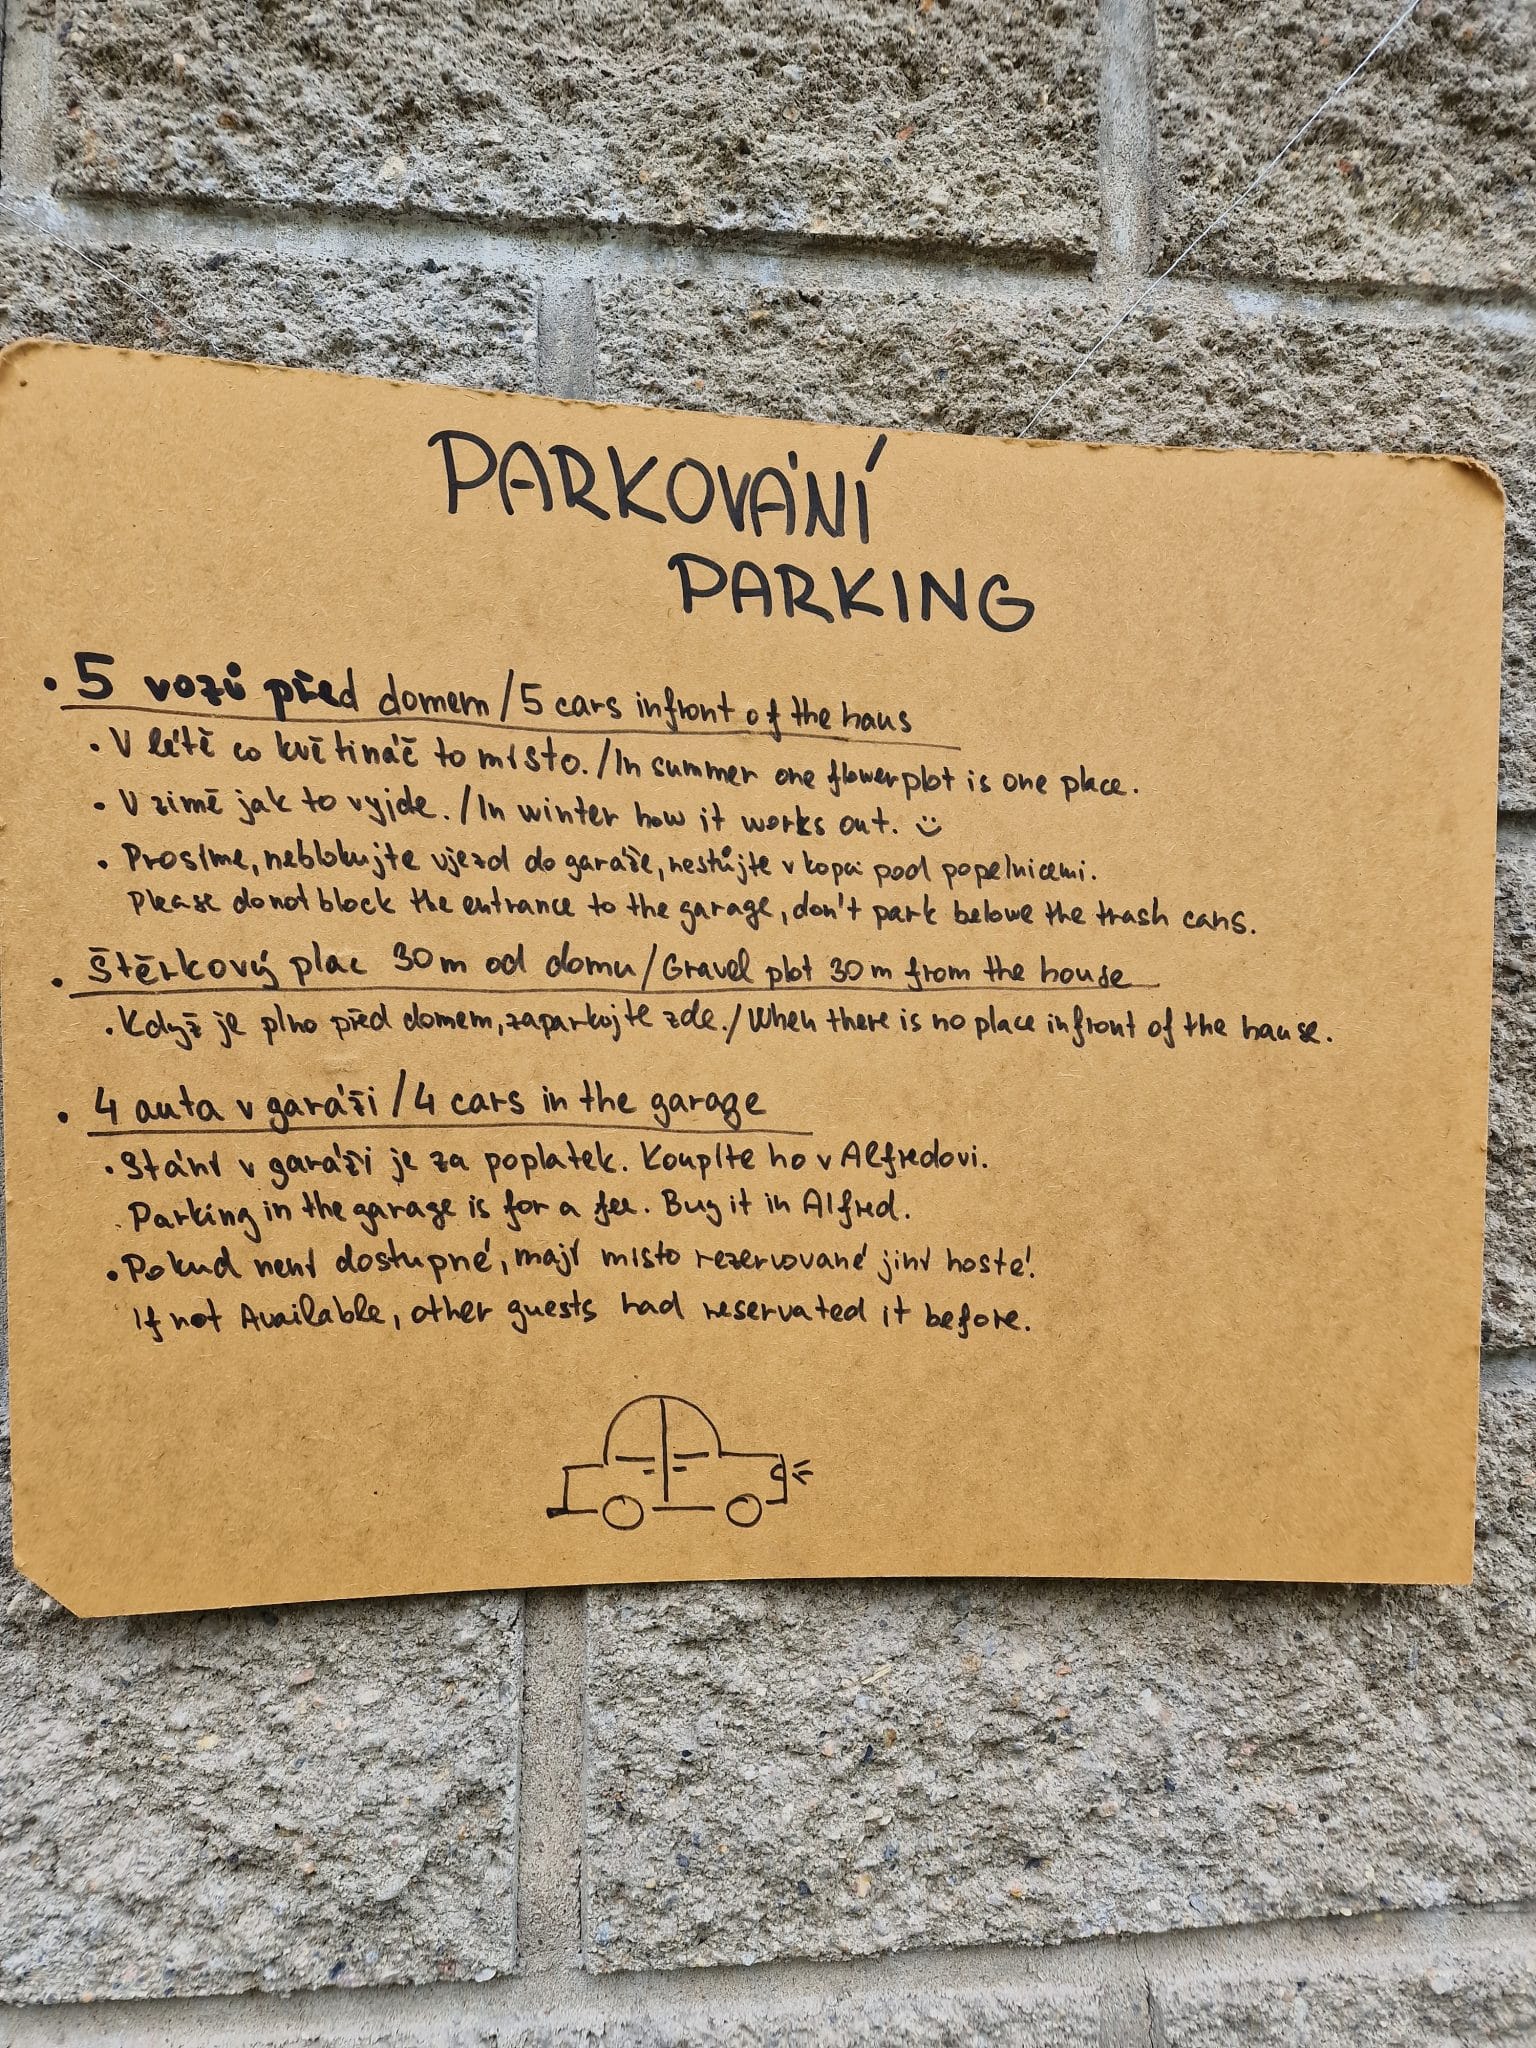 PARKOVÁNÍ
PARKING
• 5 vozů před domem / 5 cars infront of the haus
• V létě co květináč to místo. / In summer one flowerplot is one place.
• V zimě jak to vyjde. / In winter how it works out. ü
• Prosíme, neblokujte vjezd do garáže, nestůjte v kopci pod popelnicemi.
Please do not block the entrance to the garage, don't park belowe the trash cans.
• Štěrkový plac 30m od domu / Gravel plot 30m from the house
• Když je plno před domem, zaparkujte zde. / When there is no place infront of the hause.
• 4 auta v garáži / 4 cars in the garage
• Stání v garáži je za poplatek. Koupíte ho v Alfredovi.
Parking in the garage is for a fee. Buy it in Alfred.
• Pokud není dostupné, mají místo rezervované jiní hosté!
If not Available, other guests had reservated it before.